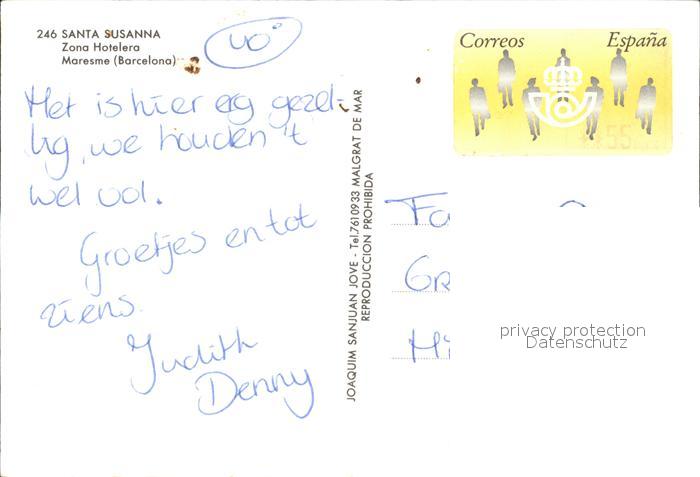 246 SANTA SUSANNA
Zona Hotelera
Maresme (Barcelona)
40°
Het is hier erg gezel-
lig, we houden 't
wel vol.
Groetjes en tot
ziens.
Judith
Denny
JOAQUIM SANJUAN JOVE - Tel. 7610933 MALGRAT DE MAR
REPRODUCCION PROHIBIDA
Correos España
55
Fa
Gr
Mi
privacy protection
Datenschutz